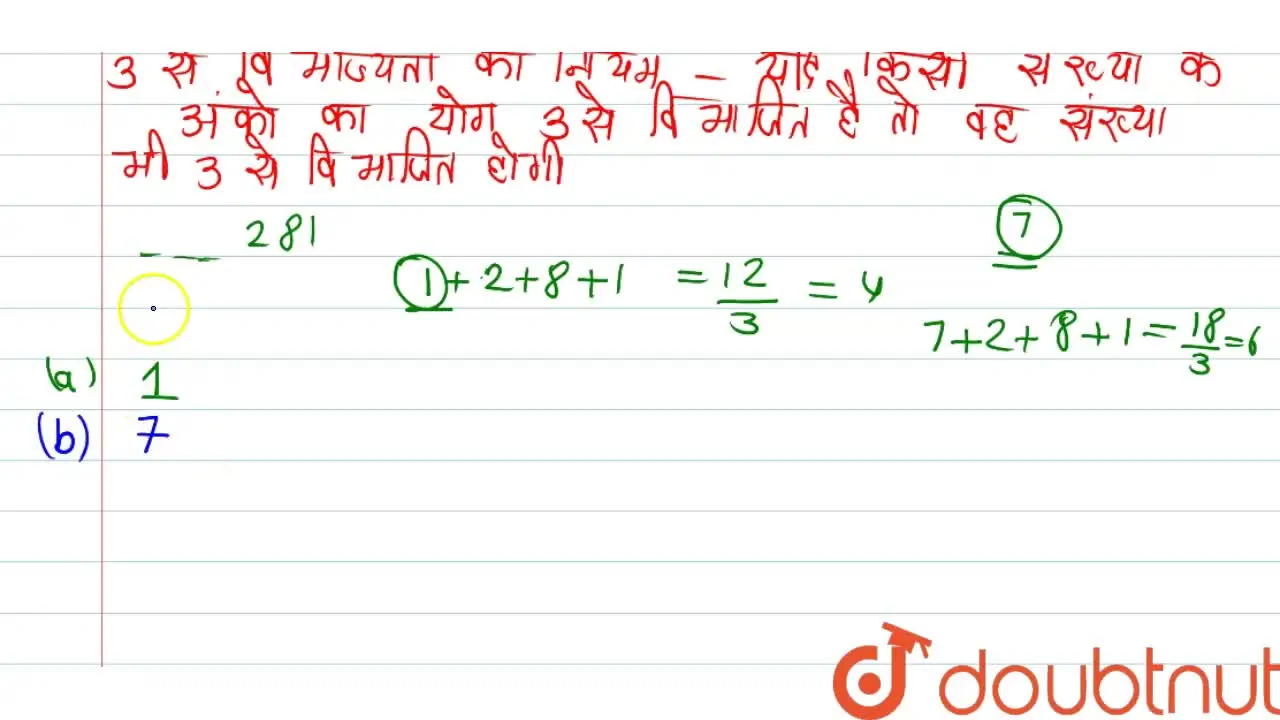 3 से विभाज्यता का नियम – यदि किसी संख्या के
अंको का योग 3 से विभाजित है तो वह संख्या
भी 3 से विभाजित होगी
__ 281
7
1+2+8+1 = 12/3 = 4
7+2+8+1 = 18/3 = 6
(a) 1
(b) 7
doubtnut